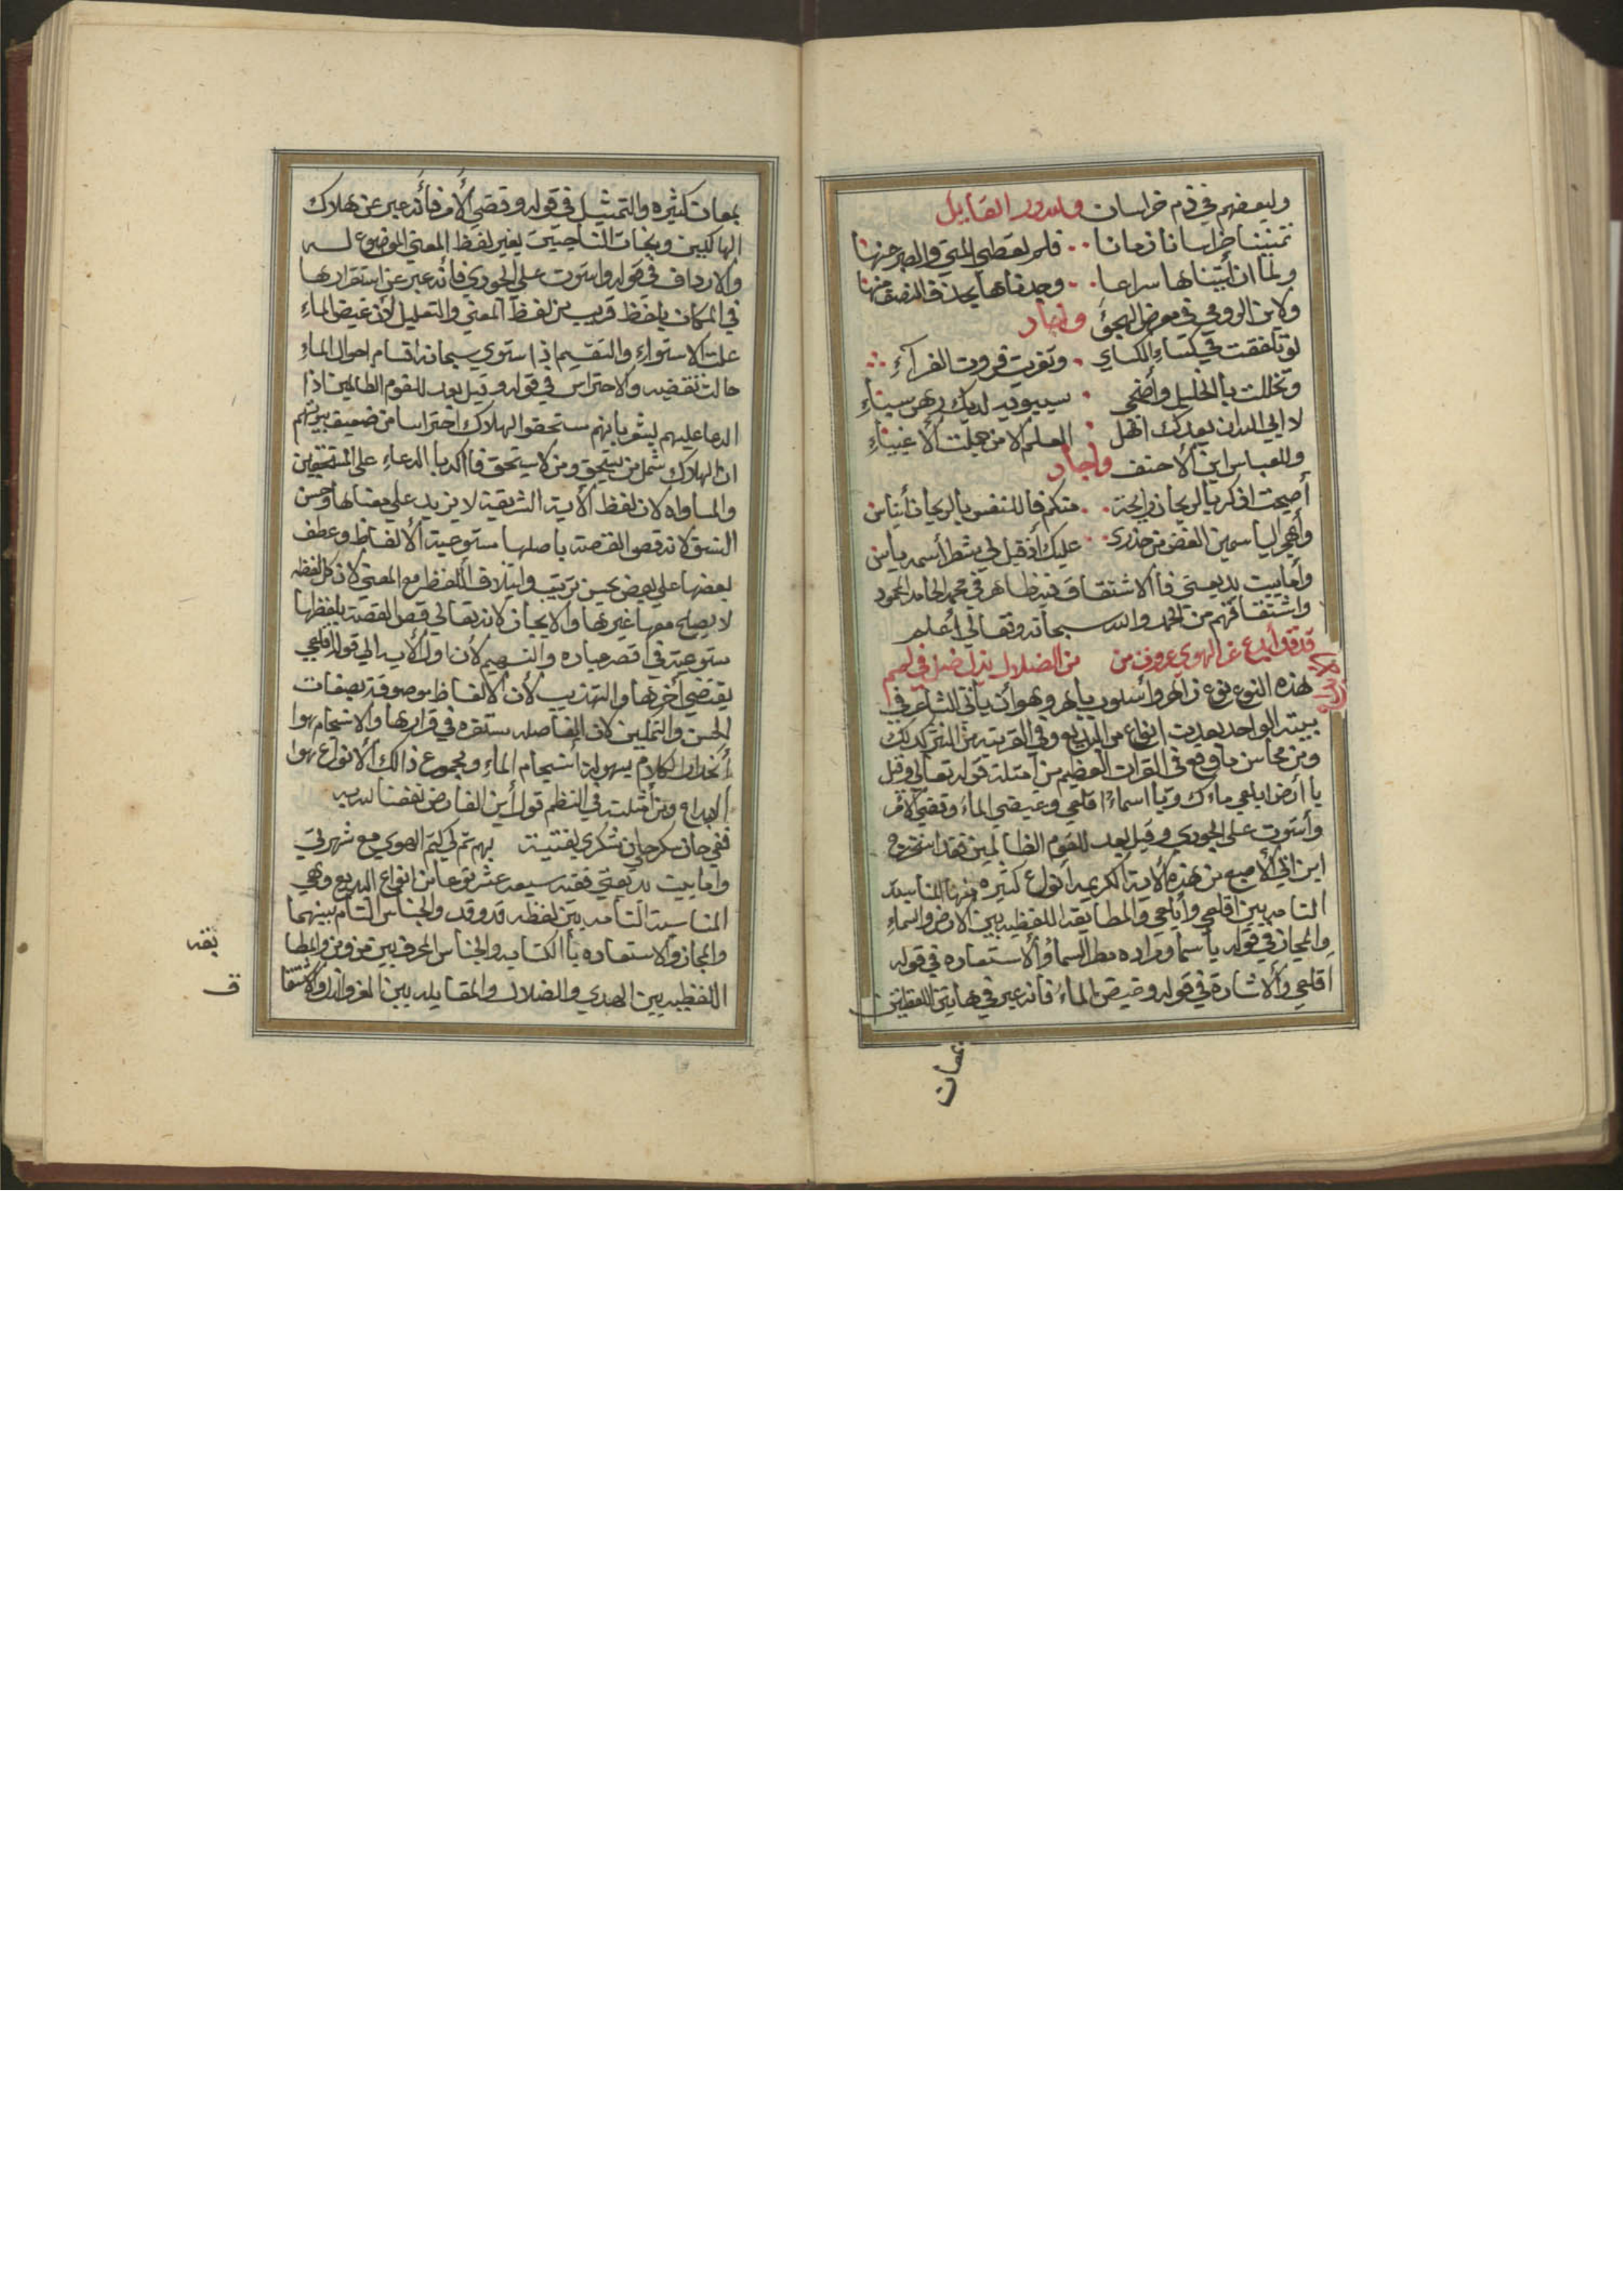 وليعضهم في ذم خراسان ولله در القايل
تمنينا خراسانا زمانا فلم نعطى المني والصبر عنها
ولما ان أتيناها سراعا وجدناها بحذف النصف منها
ولابن الرومي في معرض الهجؤ واجاد
لو تلففت في كساء الكساي وتفريت فروت الفرآء
وتخللت بالخليل وأضحى سيبويه لديك رهن سباء
لا ابي الله ان يعدك اهل العلم الا من جملت ألا غبياء
وللعباس ابن الأحنف واجاد
أصبحت اذكر بالريحان رايحة منكم فللنفس بالريحان أيناس
وأهجر الياسمين الغض من حذري عليك أذ قيل لي شطر أسمه ياس
وأما بيت بديعيتي فالاشتقاق فيه ظاهر في محمد الحامد المحمود
واشتقاقهم من الحمد والله سبحانه وتعالى أعلم
قد قل أبدع عن الهوي عروف من من الضلال بذل ضل في لهم
هذه النوع نوع زاهر وأسلوب باهر وهو أن يأتي الشاعر في
بيته الواحد بعديت انواع من البديع وفي القرينه من النثر كذلك
ومن محاسن ما وقع في القران العظيم من امتلة قوله تعالى وقيل
يا أرض ابلعي ماءك ويا اسماء اقلعي وغيضي الماء وقضي الامر
وأستوت على الجودي وقيل بعد للقوم الظالمين فقد استخرج
ابن ابي الأصبع من هذه الاية الكريمه انواع كثيره منها المناسبه
التامه بين اقلعي وأبلعي والمطابقه اللفظيه بين الارض واسماء
والمجاز في قوله يا سما ومراده مطر السماء والأستعاره في قوله
اقلعي والأشارة في قوله وغيض الماء فانه عبر في هاتين اللفظتين
بمعان
بمعان كثيره والتمثيل في قوله وقضي ألامر فأنه عبر عن هلاك
الهالكين ونجات الناجيين بغير لفظ المعني الموضوع له
والارداف في قوله واستوت على الجودي فأنه عبر عن استقرارها
في المكان بلفظ قريب من لفظ المعني والتعليل لأن غيض الماء
علت الاستواء والتقسيم اذ استوي سبحانه اقسام احوال الماء
حالت نقصه والاحتراس في قوله وقيل بعد للقوم الظالمين اذا
الدعا عليهم يشعر بانهم مستحقوا الهلاك احتراسا من ضعيف يتوهم
ان الهلاك شمل من يستحق ومن لا يستحق فاكد با الدعاء على المستحقين
والمساواه لان لفظ ألاية الشريفة لا يزيد علي معناها وحسن
النسق لانه قص القصة باصلها مستوعبة ألالفاظ وعطف
بعضها علي بعض بحسن ترتيب وايتلاف اللفظ مع المعني لان كل لفظه
لا يصلح معها غيرها والايجاز لانه تعالى قص القصة بلفظها
مستوعبة في اقصر عباره والتسهيم لأن اول ألايه الي قوله اقلعي
يقتضي أخرها والتهذيب لأن ألالفاظ موصوفة بصفات
الحسن والتمكين لان الفاصله مستقره في قرارها والانسجام هوا
أنحدار الكلام بسهولة أنسجام الماء ومجموع ذالك ألانواع هوا
الابداع ومن امثلته في النظم قول أبن الفارض نفعنا الله به
ففي حان سكر حان شكري لفتية بهم تم لي كتم الهوي مع شهرتي
واما بيت بديعتي ففيه سبعه عشر نوعا من انواع البديع وهي
المناسبة التامه بين لفظه قد وقد والجناس التام بينهما
والمجاز والاستعاره با الكنايه والجناس المحرف بين من ومن والمطا
بقه
اللفظيه بين الهدي والضلال والمقابله بين العز والذل والاشتقا
ق